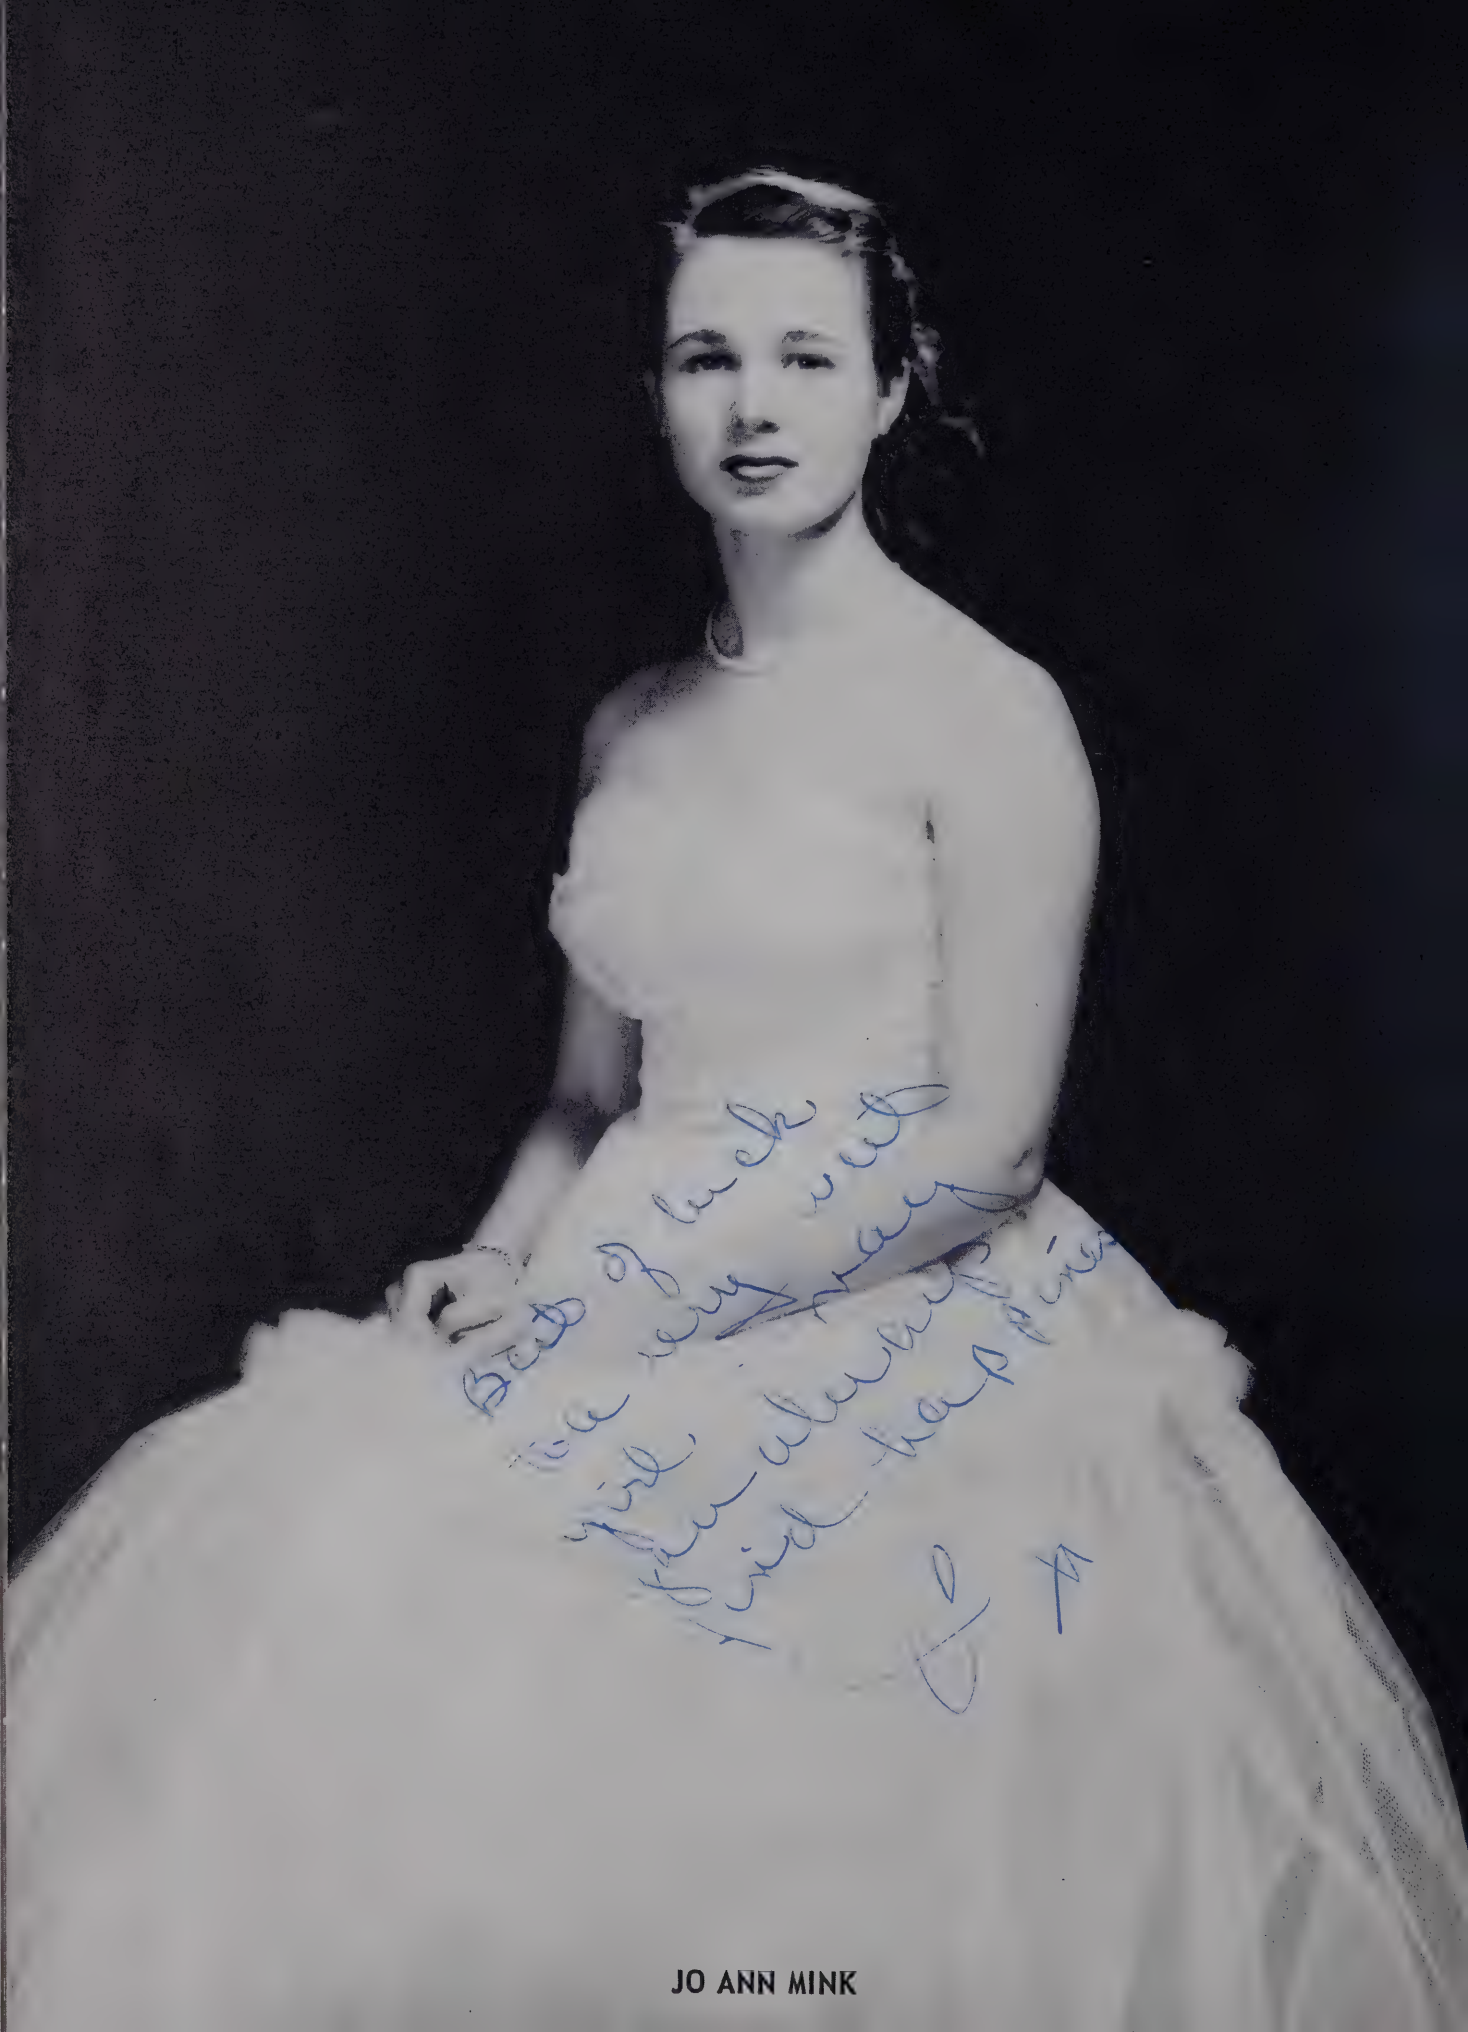 Best of luck
to a very sweet
girl. May
you always
find happiness
JO ANN MINK